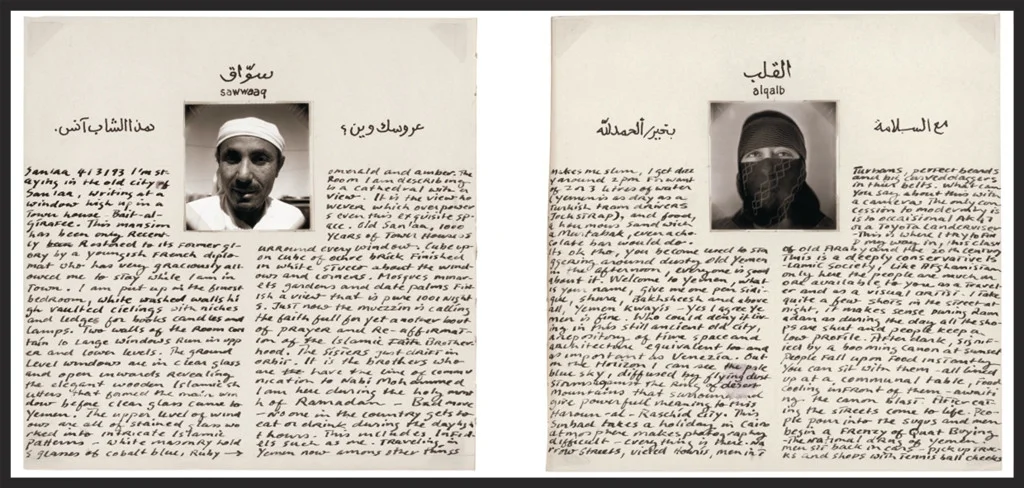 سوّاق
sawwaaq
هذا الشاب آنس.
عروسك وين؟
Sanaaa 4/3/93 I'm st-
aying in the old city of
Sanaaa, writing at a
window high up in a
Town house - Bait-al-
This mansion
has been only Recent
ly been Restored to its former gl-
ory by a youngish French diplo-
mat who has very graciously all-
owed me to stay while I am in
Town. I am put up in the finest
bedroom, white washed walls hi
gh vaulted cielings with niches
and ledges for books candles and
lamps. Two walls of the Room con
tain 10 large windows Run in upp
er and lower levels. The ground
level windows are in clear glass
and open inwards Revealing
the elegant wooden Islamic sh
utters that formed the main win
dow before clean glass came to
Yemen. The upper level of wind
ows are all of stained glass wo
rked into intricate Islamic
Patterns - white masonry hold
s glasses of cobalt blue, Ruby →
emerald and amber. The
Room I am describing
is a cathedral with a
view. It is the view ho
wever which overpower
s even this exquisite sp-
ace. Old San'aa, 1001
years of Tower Houses
urround every window. Cube up-
on cube of ochre brick Finished
in white stucco about the wind-
ows and cornices. Mosques minar-
ets gardens and date palms Fin-
ish a view that is pure 1001 Night
s. Just now the muezzin is calling
the faithfull for yet another hour
of prayer and Re-affirmat-
ion of the Islamic Faith Brother-
hood. The Sisters just cater in
orbit. It is the brothers who
are the have the line of commu
nication to Nabi Mohammed
I am here during the holy mont
h of Ramadan - Bad move
- no one in the country gets to
eat or drink during the dayligh
t hours. This includes Infid-
els such as me. Traveling in
Yemen now among other things
القلب
alqalb
بخير/الحمدلله
مع السلامة
makes me slum, I get doze
y around 2 P.M. Finwant
of 2 or 3 litres of water
(Yemen is as dry as a
Turkish tram drivers
Jockstrap), and food,
a houmous Sandwich
a Murtabak, even a cho
colate bar would do.
Its ok tho, you become used to sta
ggering around dusty old Yemen
in the afternoon, everyone is good
about it. Welcome to Yemen, what
is you name, give me pen sidi-
que, shura, Baksheesh and above
all, Yemen Kwayis - yes I agree ye
men is fine. Who could deny it liv
ing in this still ancient old city,
a repository of time space and
architecture equivalent too and
as important as Venezia. But
on the Horizon I can see the pale
blue sky, diffused by flying dust
Storms against the Ring of desert
Mountains that surround and
give powerfull meaning to this
Haroun-al-Raschid city. This
Sinbad takes a holiday in Cairo
atmosphere makes photography
difficult - everything is there. Na
rrow streets, vieled Houris, men in T
Turbans, perfect beards
and big curved daggers
in thur belts. What can
you say about this with
a camera. The only con
cession to modernity is
the occasional AK 47
or a Toyota Landcruiser
- This is where I try to fo
my way in, this clash
of old Araby and the 20th Century
This is a deeply conservative Is-
lamic Society, like Afghanistan
only here the people are much m
ore available to you as a Travel
er and as a visual artist. I take
quite a few shots in the street at
night, it makes sense during Ram
adan as during the day all the sho
ps are shut and people keep a
low profile. After dark, signif-
ied by a booming canon at sunset
People Fall upon Food instantly
you can sit with them - all lined
up at a communal table, Food
cooling infront of them - awaiti
ng the canon blast. After eat-
ing the streets come to life. Peo-
ple pour into the suqus and men
begin a Frenzy of Quat Buying
- The National drug of Yemen.
men sit back in cars - pick up truc-
ks and shops with tennis ball cheeks